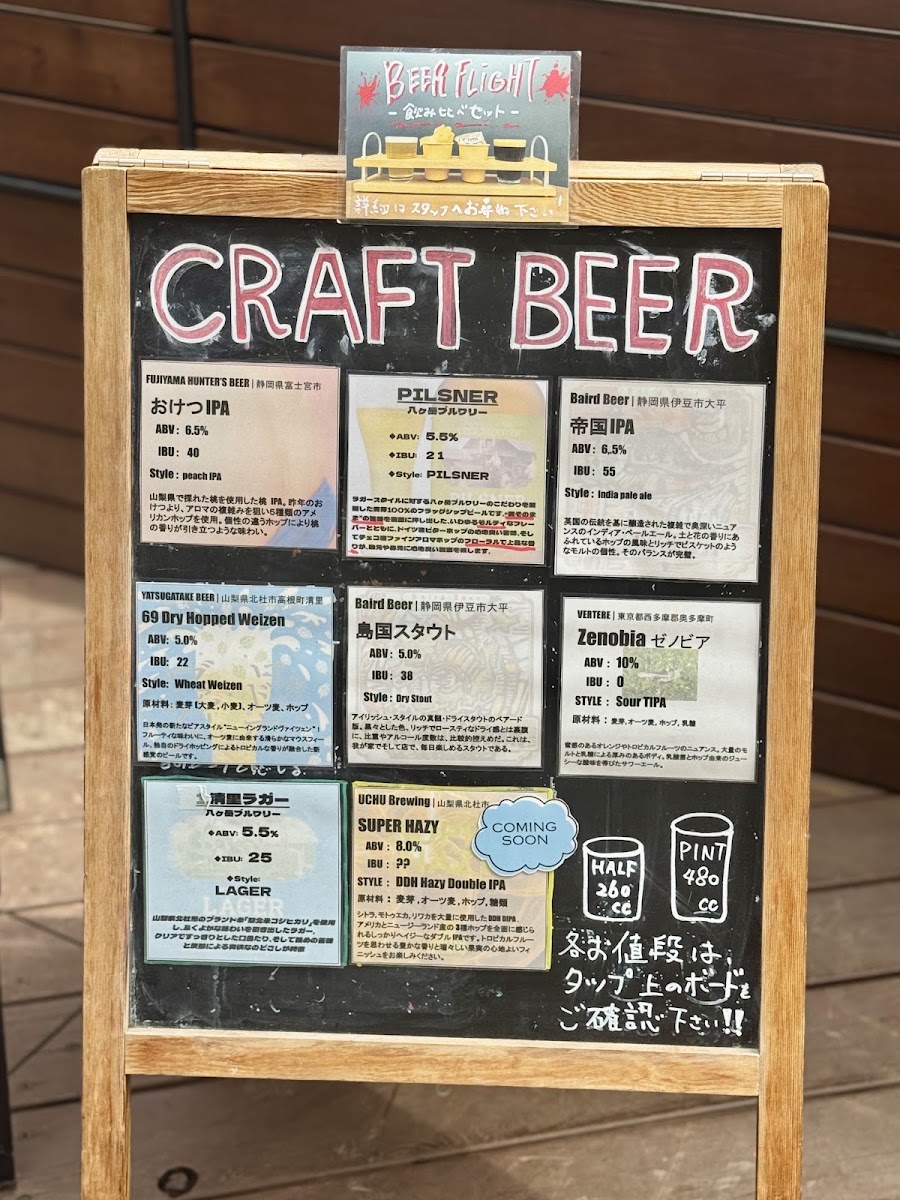 BEER FLIGHT
- 飲み比べセット -
詳細はスタッフへお尋ね下さい!
CRAFT BEER
FUJIYAMA HUNTER'S BEER | 静岡県富士宮市
おけつIPA
ABV: 6.5%
IBU: 40
Style : peach IPA
山梨県で採れた桃を使用した桃 IPA。昨年のお
けつより、アロマの複雑みを狙い5種類のアメ
リカンホップを使用。個性の違うホップにより桃
の香りが引き立つような味わい。
PILSNER
八ヶ岳ブルワリー
❖ABV: 5.5%
❖IBU: 21
❖Style: PILSNER
ラガースタイルに対する八ヶ岳ブルワリーのこだわりを凝
縮した麦芽100%のフラグシップビールです。
の個性を前面に押し出した、いわゆるモルティなフレー
バーとともに、ドイツ産ビターホップの心地良い苦味、そし
てチェコ産ファインアロマホップのフローラルで上品な香
りが、
Baird Beer | 静岡県伊豆市大平
帝国IPA
ABV : 6,5%
IBU : 55
Style : India pale ale
英国の伝統を基に醸造された複雑で奥深いニュア
ンスのインディア・ペールエール。土と花の香りにあ
ふれているホップの風味とリッチでビスケットのよう
なモルトの個性。そのバランスが完璧。
YATSUGATAKE BEER | 山梨県北杜市高根町清里
69 Dry Hopped Weizen
ABV: 5.0%
IBU: 22
Style: Wheat Weizen
原材料: 麦芽(大麦, 小麦), オーツ麦、ホップ
日本発の新たなビアスタイル"ニューイングランドヴァイツェン"!
フルーティな味わいに、オーツ麦に由来する滑らかなマウスフィー
ル、独自のドライホッピングによるトロピカルな香りが融合した新
感覚のビールです。
Baird Beer | 静岡県伊豆市大平
島国スタウト
ABV : 5.0%
IBU : 38
Style : Dry Stout
アイリッシュ・スタイルの真髄・ドライスタウトのベアード
版。黒々とした色、リッチでロースティなドライ感とは裏腹
に、比重やアルコール度数は、比較的控えめだ。これは、
我が家でそして店で、毎日楽しめるスタウトである。
VERTERE | 東京都西多摩郡奥多摩町
Zenobia ゼノビア
ABV : 10%
IBU : 0
STYLE : Sour TIPA
原材料 : 麦芽, オーツ麦, ホップ, 乳糖
蜜感のあるオレンジやトロピカルフルーツのニュアンス。大量のモ
ルトと乳糖による厚みのあるボディ。乳酸菌とホップ由来のジュー
シーな酸味を帯びたサワーエール。
清里ラガー
八ヶ岳ブルワリー
❖ABV: 5.5%
❖IBU: 25
❖Style:
LAGER
山梨県北杜市のブランド米「梨北米コシヒカリ」を使用
し、良くよかな味わいを引き出したラガー。
クリアですっきりとした口当たり、そして強めの苦味
と炭酸による爽快なのどごしが特徴
UCHU Brewing | 山梨県北杜市
SUPER HAZY
ABV : 8.0%
IBU : ??
STYLE : DDH Hazy Double IPA
原材料 : 麦芽, オーツ麦, ホップ, 糖類
シトラ, モトゥエカ, リワカを大量に使用した DDH DIPA 。
アメリカとニュージーランド産の 3種ホップを全面に感じら
れるしっかりヘイジーなダブル IPAです。トロピカルフルー
ツを思わせる豊かな香りと瑞々しい果実の心地よいフィ
ニッシュをお楽しみください。
COMING
SOON
HALF
260
cc
PINT
480
cc
各お値段は、
タップ上のボードを
ご確認下さい!!